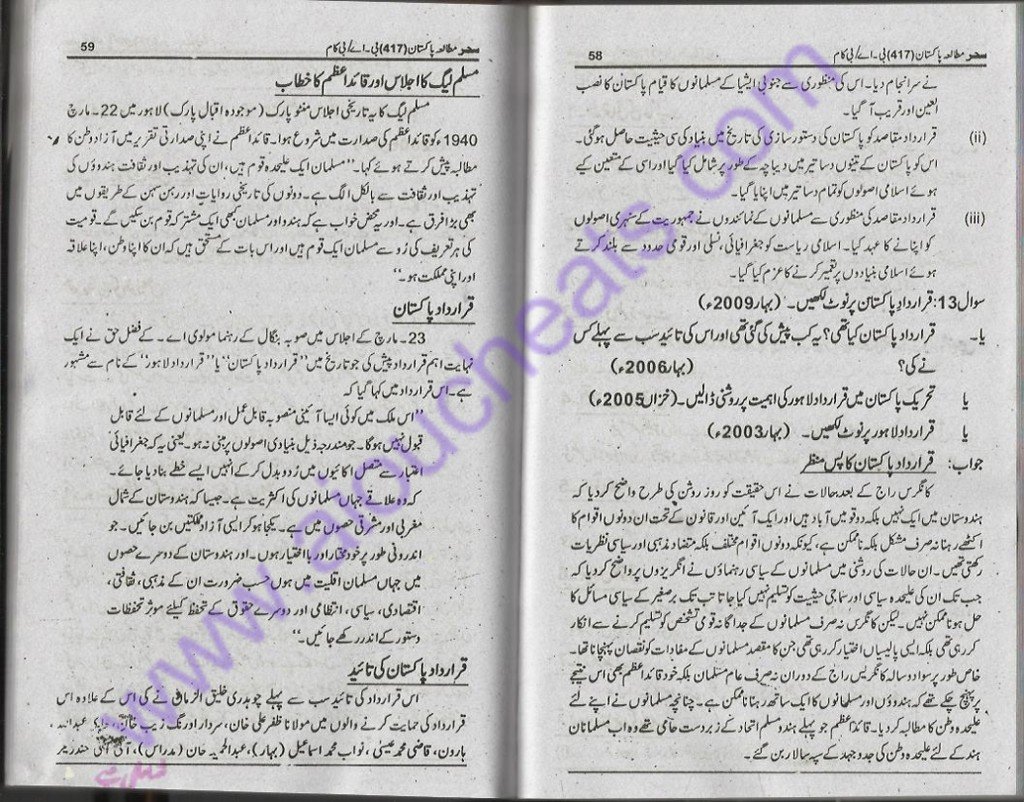 سحر مطالعہ پاکستان (417) بی۔اے/بی کام 58
نے سرانجام دیا۔ اس کی منظوری سے جنوبی ایشیا کے مسلمانوں کا قیام پاکستان کا نصب
العین اور قریب آ گیا۔
(ii) قرارداد مقاصد کو پاکستان کی دستور سازی کی تاریخ میں بنیاد کی سی حیثیت حاصل ہو گئی۔
اس کو پاکستان کے تینوں دساتیر میں دیباچہ کے طور پر شامل کیا گیا اور اسی کے متعین کیے
ہوئے اسلامی اصولوں کو تمام دساتیر میں اپنایا گیا۔
(iii) قرارداد مقاصد کی منظوری سے مسلمانوں کے نمائندوں نے جمہوریت کے سنہری اصولوں
کو اپنانے کا عہد کیا۔ اسلامی ریاست کو جغرافیائی، نسلی اور قومی حدود سے بلند کرتے
ہوئے اسلامی بنیادوں پر تعمیر کرنے کا عزم کیا گیا۔
سوال 13: قرارداد پاکستان پر نوٹ لکھیں۔ (بہار 2009ء)
یا۔ قرارداد پاکستان کیا تھی؟ یہ کب پیش کی گئی تھی اور اس کی تائید سب سے پہلے کس
نے کی؟ (بہار 2006ء)
یا تحریک پاکستان میں قرارداد لاہور کی اہمیت پر روشنی ڈالیں۔ (خزاں 2005ء)
یا قرارداد لاہور پر نوٹ لکھیں۔ (بہار 2003ء)
جواب: قرارداد پاکستان کا پس منظر
کانگرس راج کے بعد حالات نے اس حقیقت کو روز روشن کی طرح واضح کر دیا کہ
ہندوستان میں ایک نہیں بلکہ دو قومیں آباد ہیں اور ایک آئین اور قانون کے تحت ان دونوں اقوام کا
اکٹھے رہنا نہ صرف مشکل بلکہ ناممکن ہے، کیونکہ دونوں اقوام مختلف بلکہ متضاد مذہبی اور سیاسی نظریات
رکھتی تھیں۔ ان حالات کی روشنی میں مسلمانوں کے سیاسی رہنماؤں نے انگریزوں پر واضح کر دیا کہ
جب تک ان کی علیحدہ سیاسی اور سماجی حیثیت کو تسلیم نہیں کیا جاتا تب تک برصغیر کے سیاسی مسائل کا
حل ہونا ممکن نہیں۔ لیکن کانگرس نہ صرف مسلمانوں کے جداگانہ قومی تشخص کو تسلیم کرنے سے انکار
کر رہی تھی بلکہ ایسی پالیسیاں اختیار کر رہی تھی جن کا مقصد مسلمانوں کے مفادات کو نقصان پہنچانا تھا۔
خاص طور پر سوا دو سالہ کانگریس راج کے دوران نہ صرف عام مسلمان بلکہ خود قائداعظم بھی اس نتیجے
پر پہنچ چکے تھے کہ ہندوؤں اور مسلمانوں کا ایک ساتھ رہنا ناممکن ہے۔ چنانچہ مسلمانوں نے اپنے لئے
علیحدہ وطن کا مطالبہ کر دیا۔ قائداعظم جو پہلے ہندو مسلم اتحاد کے زبردست حامی تھے وہ اب مسلمانان
ہند کے لئے علیحدہ وطن کی جدوجہد کے سپہ سالار بن گئے۔
سحر مطالعہ پاکستان (417) بی۔اے/بی کام 59
مسلم لیگ کا اجلاس اور قائداعظم کا خطاب
مسلم لیگ کا یہ تاریخی اجلاس منٹو پارک (موجودہ اقبال پارک) لاہور میں 22۔ مارچ
1940ء کو قائداعظم کی صدارت میں شروع ہوا۔ قائداعظم نے اپنی صدارتی تقریر میں آزاد وطن کا
مطالبہ پیش کرتے ہوئے کہا۔ ”مسلمان ایک علیحدہ قوم ہیں، ان کی تہذیب اور ثقافت ہندوؤں کی
تہذیب اور ثقافت سے بالکل الگ ہے۔ دونوں کی تاریخی روایات اور رہن سہن کے طریقوں میں
بھی بڑا فرق ہے۔ اور یہ محض خواب ہے کہ ہندو اور مسلمان کبھی ایک مشترکہ قوم بن سکیں گے۔ قومیت
کی ہر تعریف کی رُو سے مسلمان ایک قوم ہیں اور اس بات کے مستحق ہیں کہ ان کا اپنا وطن، اپنا علاقہ
اور اپنی مملکت ہو۔“
قرارداد پاکستان
23۔ مارچ کے اجلاس میں صوبہ بنگال کے رہنما مولوی اے۔ کے فضل حق نے ایک
نہایت اہم قرارداد پیش کی جو تاریخ میں ”قرارداد پاکستان“ یا ”قرارداد لاہور“ کے نام سے مشہور
ہے۔ اس قرارداد میں کہا گیا کہ
”اس ملک میں کوئی ایسا آئینی منصوبہ قابل عمل اور مسلمانوں کے لئے قابل
قبول نہیں ہو گا۔ جو مندرجہ ذیل بنیادی اصولوں پر مبنی نہ ہو۔ یعنی یہ کہ جغرافیائی
اعتبار سے متصل اکائیوں میں ردوبدل کر کے انہیں ایسے خطے بنا دیا جائے۔
کہ وہ علاقے جہاں مسلمانوں کی اکثریت ہے۔ جیسا کہ ہندوستان کے شمال
مغربی اور مشرقی حصوں میں ہے۔ یکجا ہو کر ایسی آزاد مملکتیں بن جائیں۔ جو
اندرونی طور پر خود مختار اور بااختیار ہوں۔ اور ہندوستان کے دوسرے حصوں
میں جہاں مسلمان اقلیت میں ہوں حسب ضرورت ان کے مذہبی، ثقافتی،
اقتصادی، سیاسی، انتظامی اور دوسرے حقوق کے تحفظ کیلئے موثر تحفظات
دستور کے اندر رکھے جائیں۔“
قرارداد پاکستان کی تائید
اس قرارداد کی تائید سب سے پہلے چوہدری خلیق الزماں نے کی اس کے علاوہ اس
قرارداد کی حمایت کرنے والوں میں مولانا ظفر علی خان، سردار اورنگ زیب خان، عبداللہ
ہارون، قاضی محمد عیسیٰ، نواب محمد اسماعیل (بہار)، عبدالحمید خان (مدراس)، آئی آئی چندریگر
www.aioucheats.com